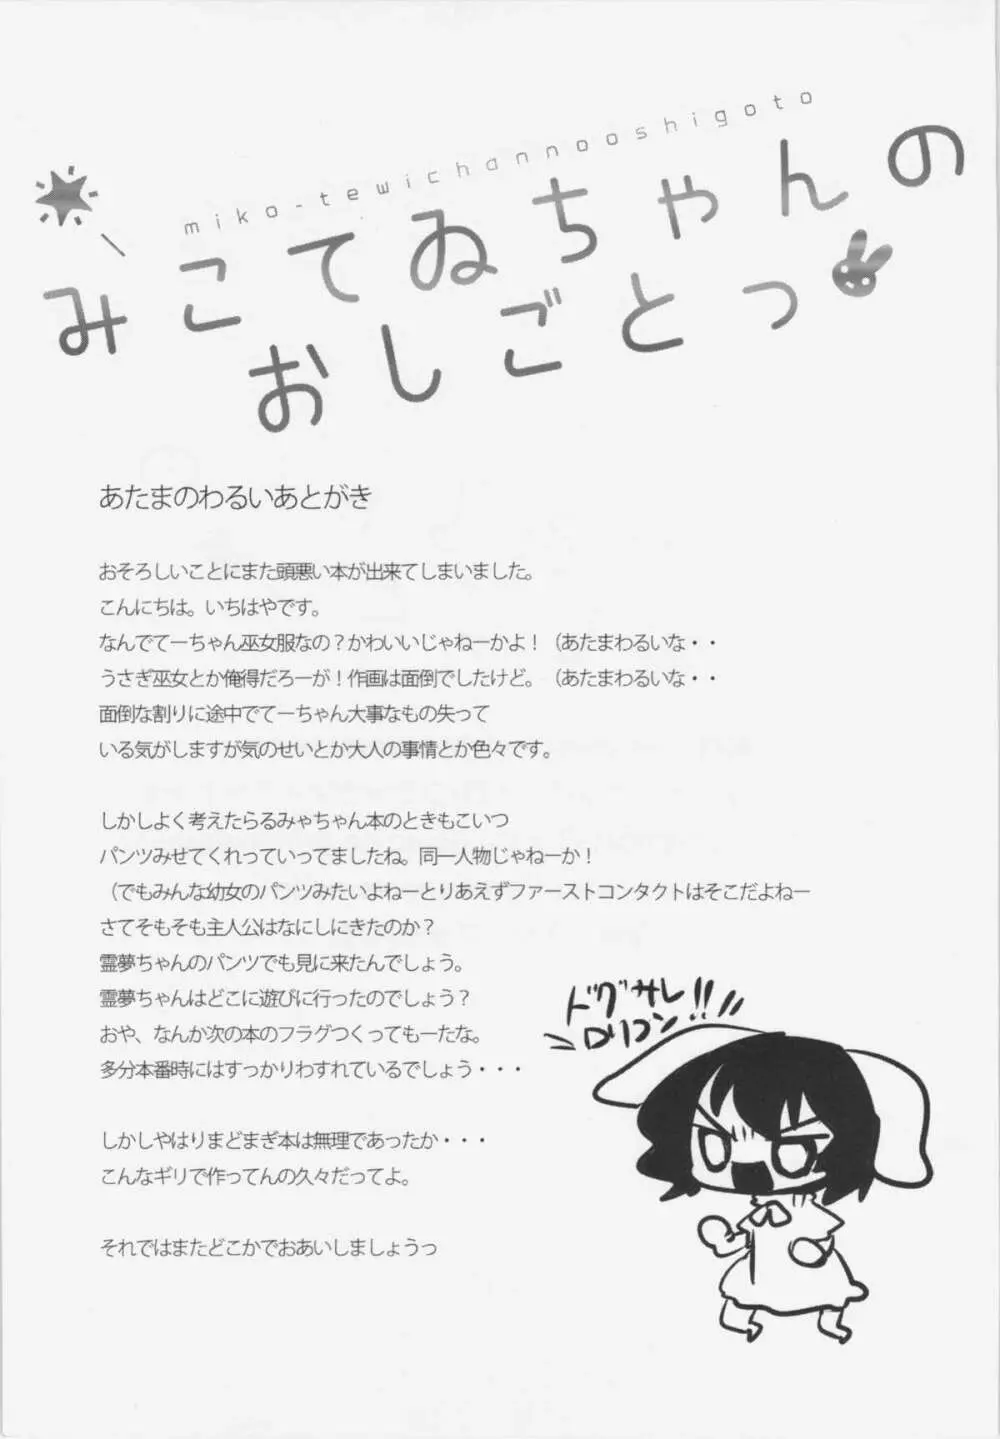 miko-tewichannooshigoto
みこてゐちゃんの
おしごとっ
あたまのわるいあとがき
おそろしいことにまた頭悪い本が出来てしまいました。
こんにちは。いちはやです。
なんでてーちゃん巫女服なの？かわいいじゃねーかよ！（あたまわるいな・・
うさぎ巫女とか俺得だろーが！作画は面倒でしたけど。（あたまわるいな・・
面倒な割りに途中でてーちゃん大事なもの失って
いる気がしますが気のせいとか大人の事情とか色々です。
しかしよく考えたらるみゃちゃん本のときもこいつ
パンツみせてくれっていってましたね。同一人物じゃねーか！
（でもみんな幼女のパンツみたいよねーとりあえずファーストコンタクトはそこだよねー
さてそもそも主人公はなにしにきたのか？
霊夢ちゃんのパンツでも見に来たんでしょう。
霊夢ちゃんはどこに遊びに行ったのでしょう？
おや、なんか次の本のフラグつくってもーたな。
多分本番時にはすっかりわすれているでしょう・・・
しかしやはりまどまぎ本は無理であったか・・・
こんなギリで作ってんの久々だってよ。
それではまたどこかでおあいしましょうっ
ドグサレ
ロリコン!!!!